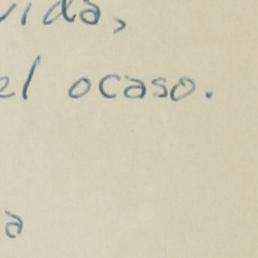 vida,
el ocaso.
a